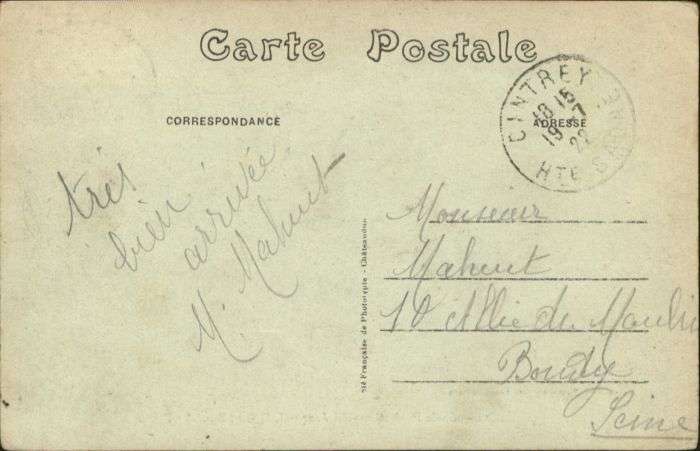 Carte Postale
CORRESPONDANCE
ADRESSE
CINTREY
18 15
19 -7
22
HTE SAONE
très
bien
arrivée
M. Mahut
Sté Française de Phototypie - Châteaudun
Monsieur
Mahut
10 Allée de
Bondy
Seine